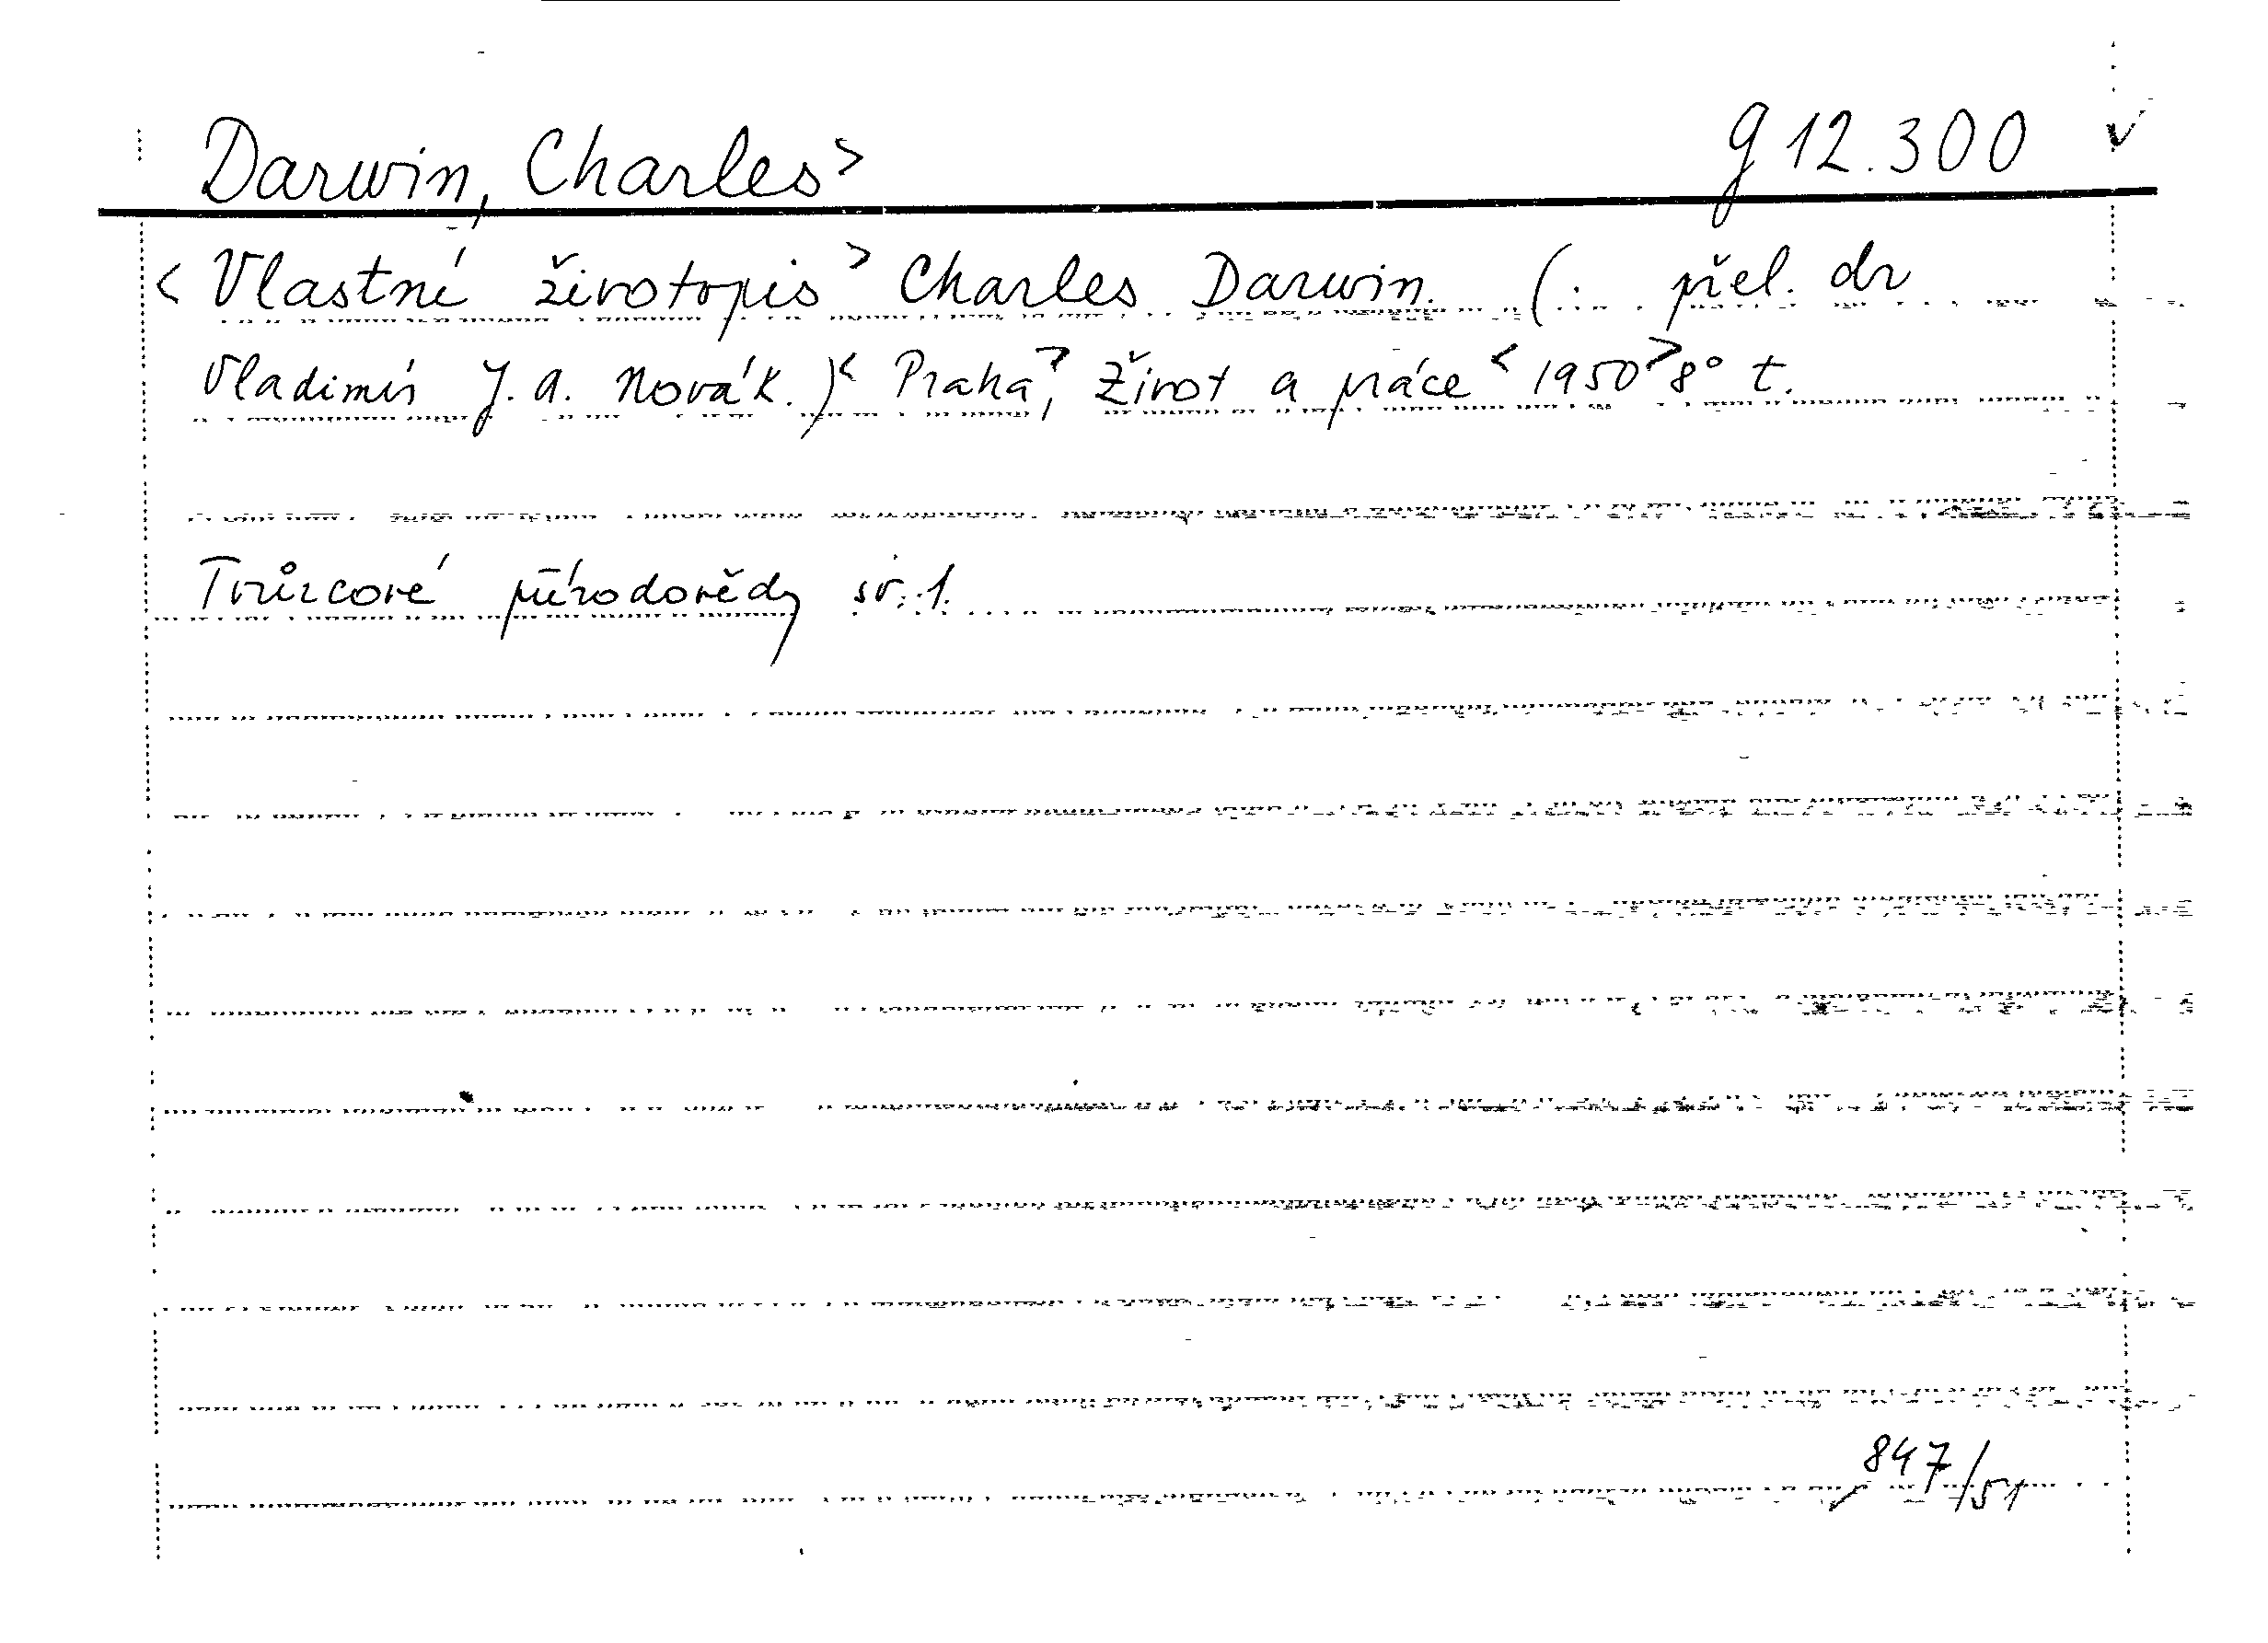 Darwin, Charles> g 12.300 v
<Vlastní životopis> Charles Darwin. (: přel. dr
Vladimír J. A. Novák.)< Praha>, Život a práce <1950> 8° t.
Tvůrcové přírodovědy sv. 1.
847/51